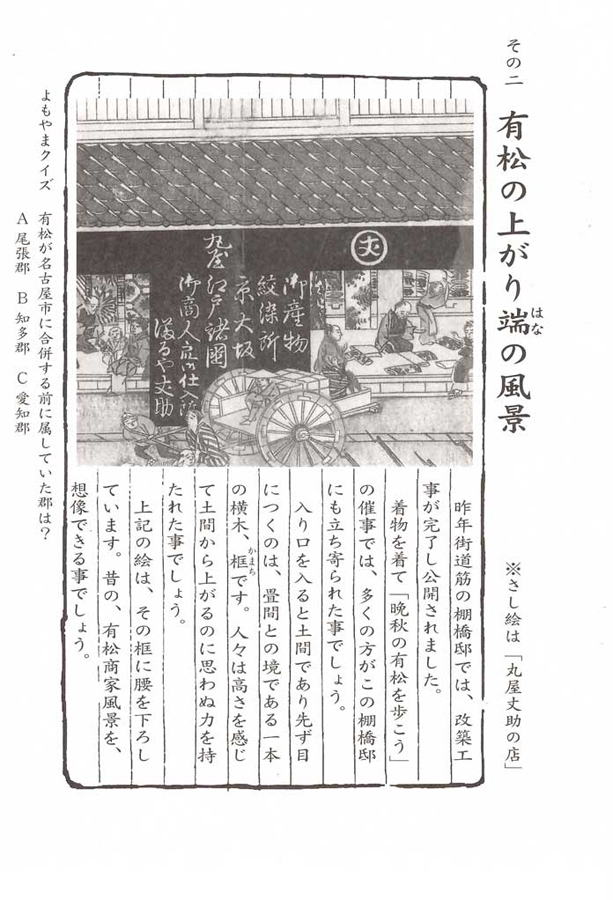 その二　有松の上がり端の風景
はな
※さし絵は「丸屋丈助の店」
丈
御産物
絞染所
京大坂
江戸諸國
御商人衆仕入所
まるや丈助
丸屋
昨年街道筋の棚橋邸では、改築工
事が完了し公開されました。
着物を着て「晩秋の有松を歩こう」
の催事では、多くの方がこの棚橋邸
にも立ち寄られた事でしょう。
入り口を入ると土間であり先ず目
につくのは、畳間との境である一本
の横木、框です。人々は高さを感じ
かまち
て土間から上がるのに思わぬ力を持
たれた事でしょう。
上記の絵は、その框に腰を下ろし
ています。昔の、有松商家風景を、
想像できる事でしょう。
よもやまクイズ　有松が名古屋市に合併する前に属していた郡は?
A 尾張郡　B 知多郡　C 愛知郡